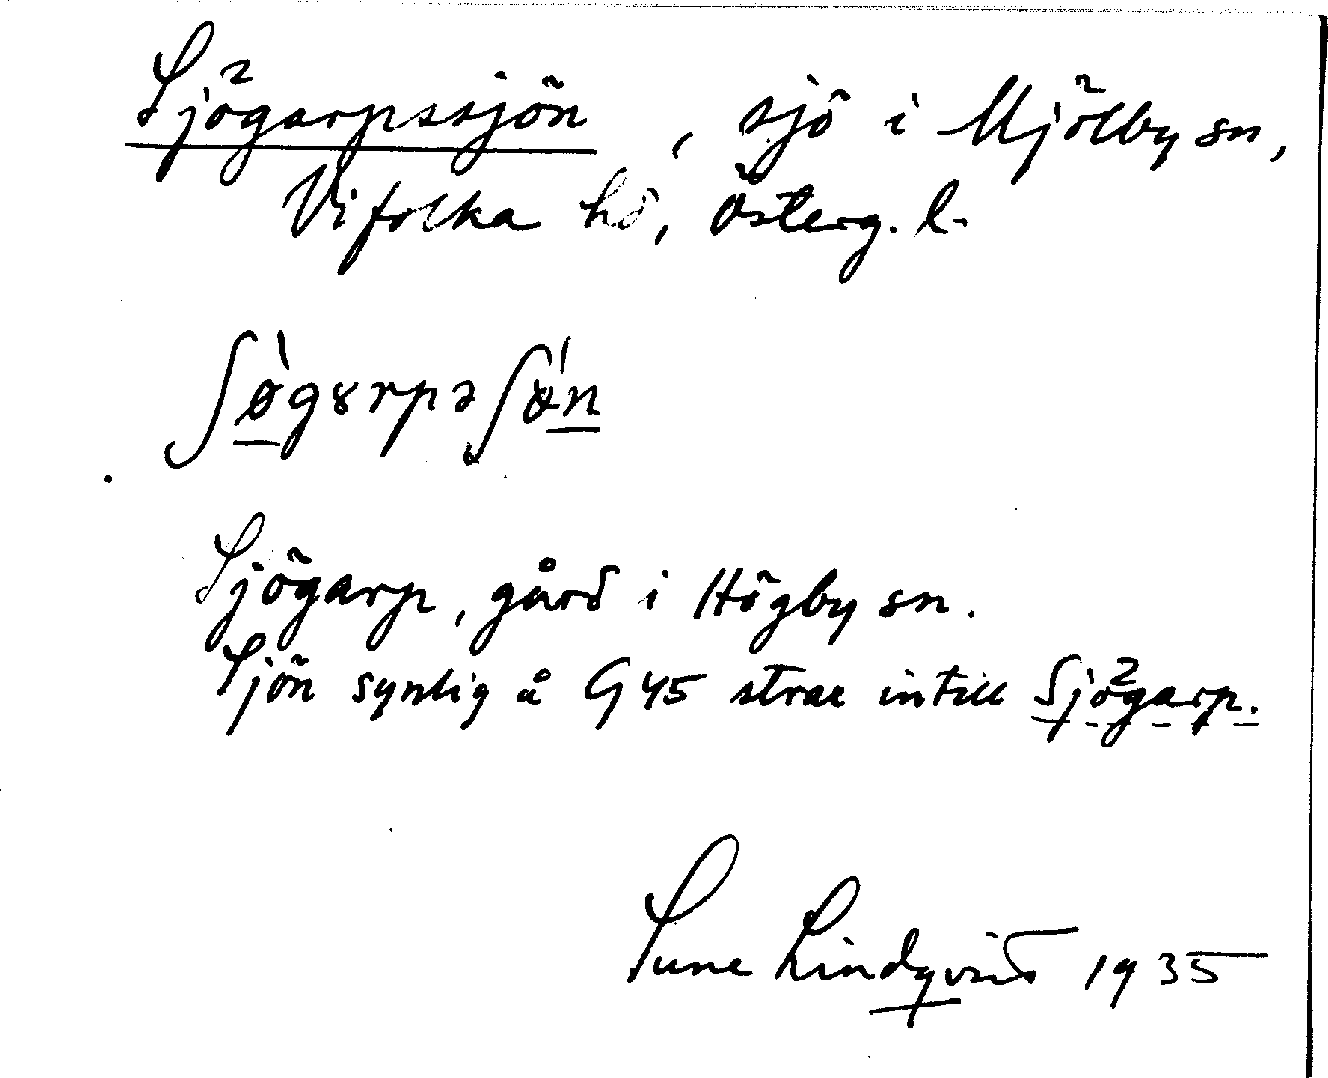 Sjögarpssjön, sjö i Mjölby sn,
Vifolka hd, Österg. l.
ʃø̀gɤrpəʃǿn
Sjögarp, gård i Högby sn.
Sjön synlig å G 45 strax intill Sjögarp.
Sune Lindqvist 1935